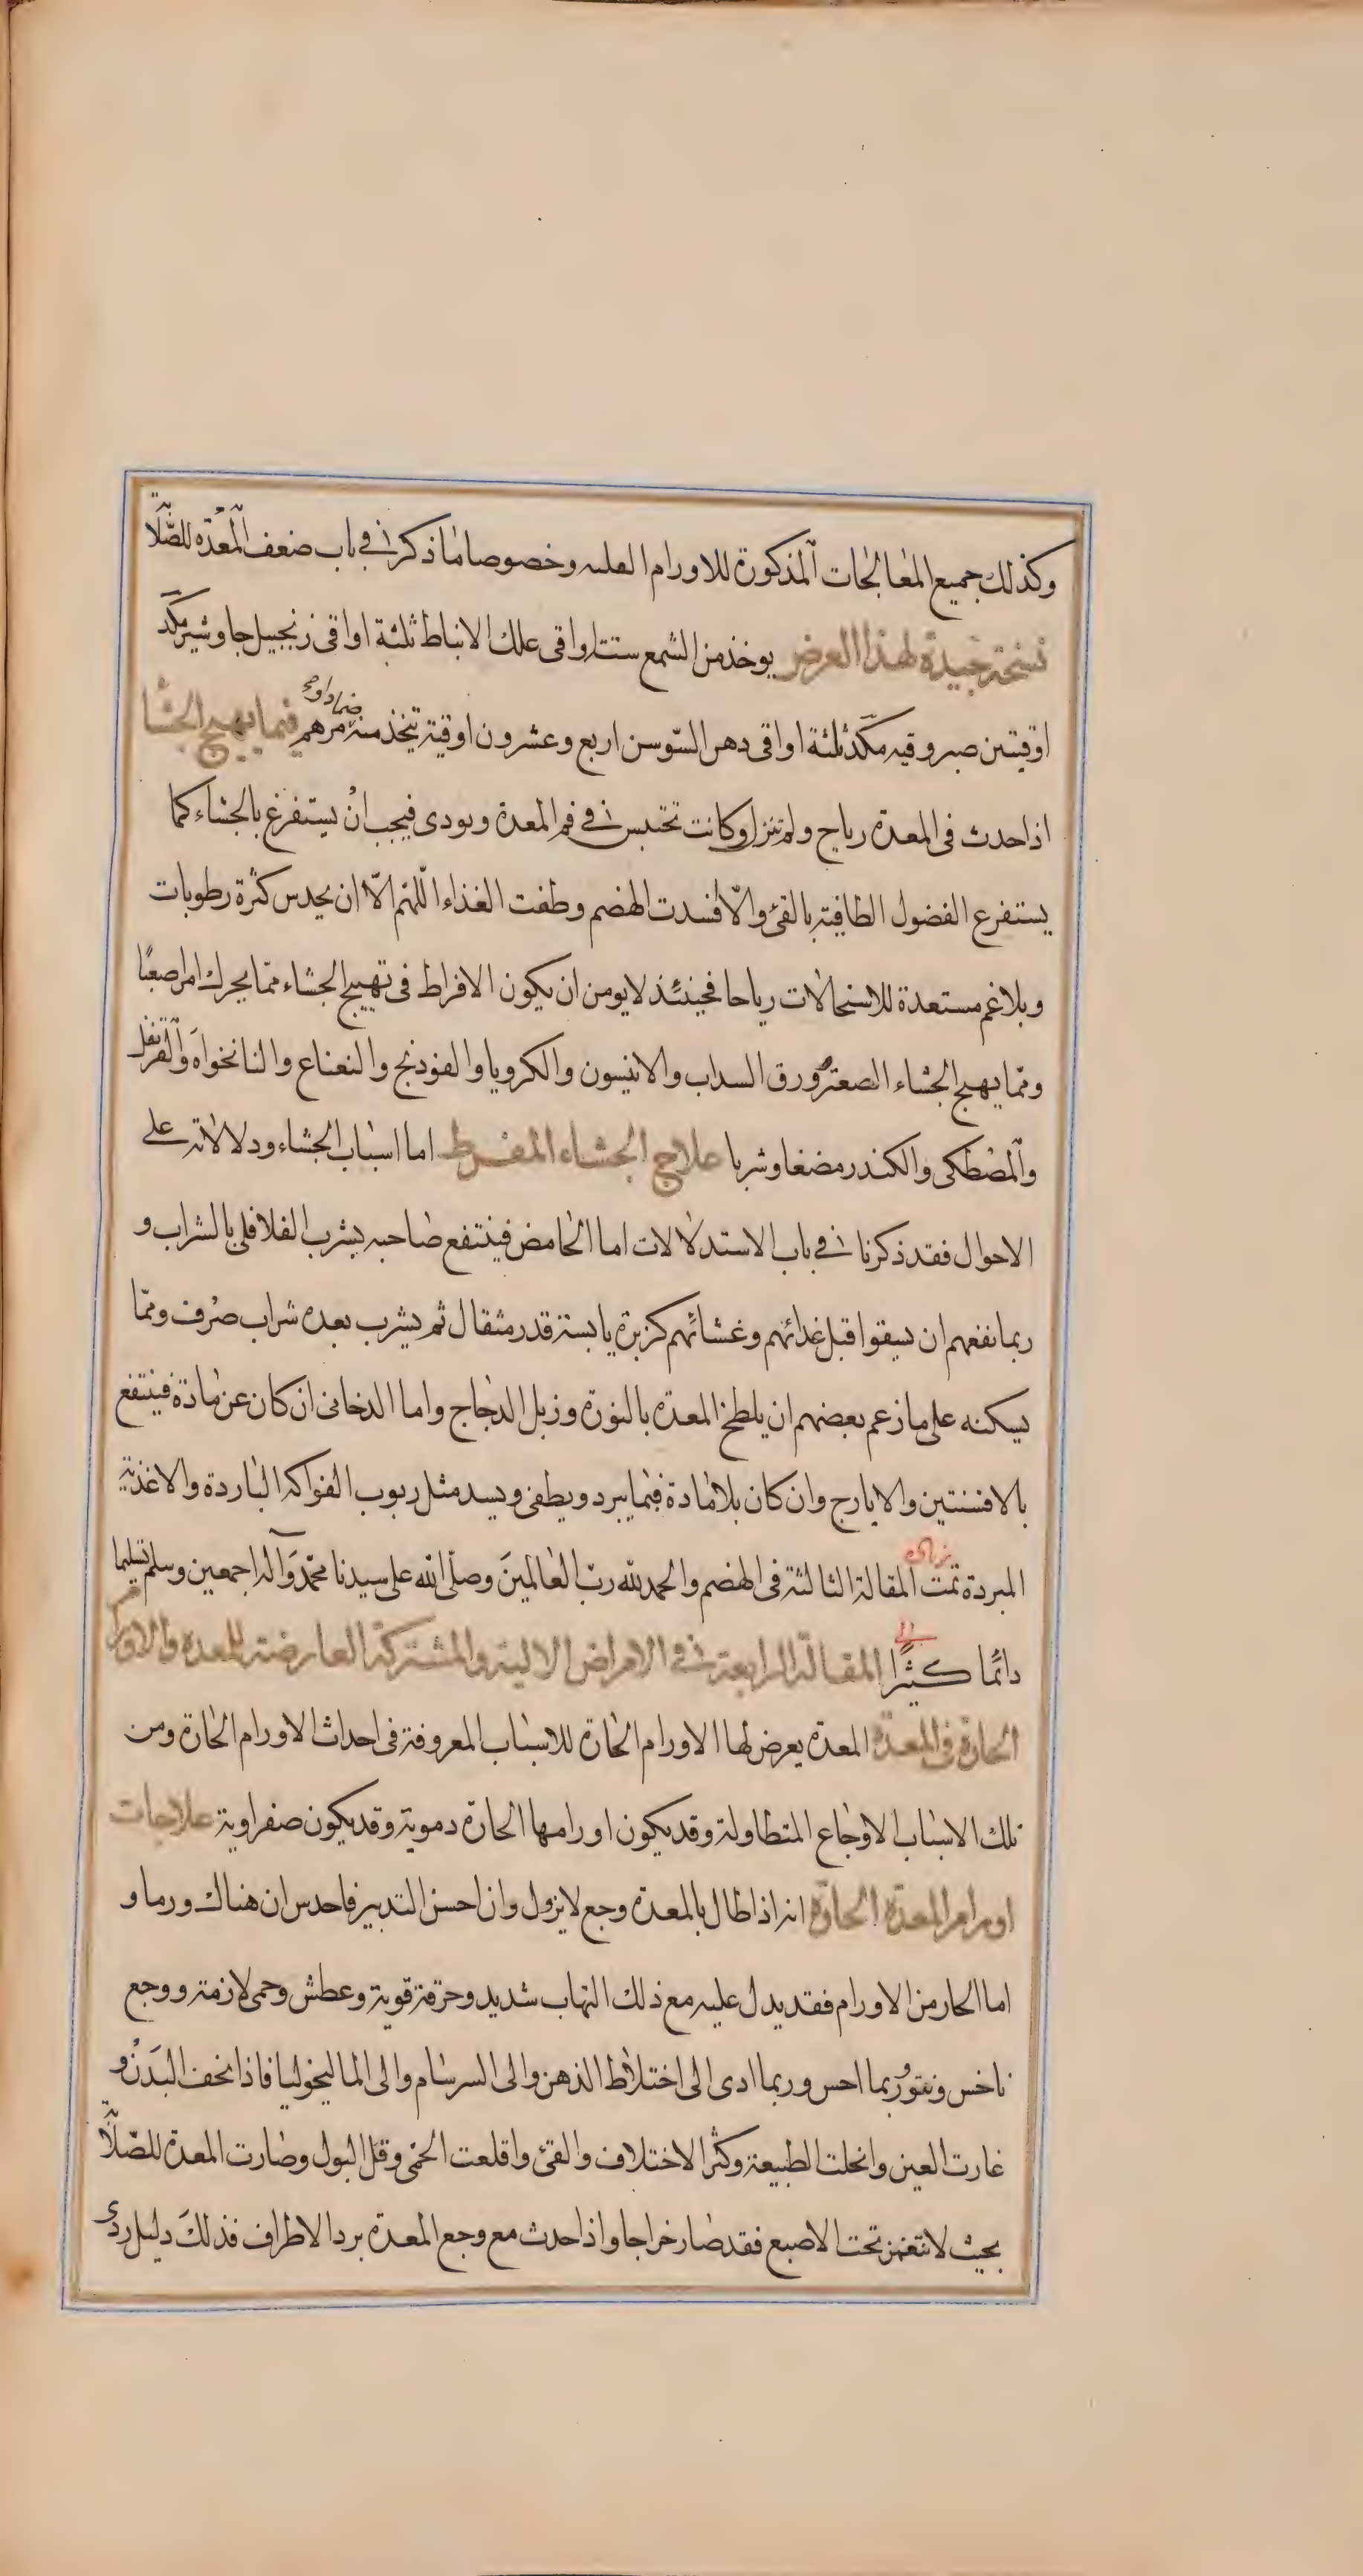 وكذلك جميع المعالجات المذكورة للاورام الصلبه وخصوصا ما ذكر في باب ضعف المعده للصلابة
نسخة جيدة لهذا العرض يوخذ من الشمع ست اواقى علك الانباط ثلثة اواقى زنجبيل جاوشير مكد
اوقيتين صبر وقيه مكد ثلثة اواقى دهن السوسن اربع وعشرون اوقية يتخذ منه مرهم فيما يهيج الجشا
اذا حدث فى المعدة رياح ولم تنزل وكانت تحتبس في فم المعدة وبودى فيجب ان يستفرغ بالجشاء كما
يستفرع الفضول الطافية بالقئ والا فسدت الهضم وطفت الغذاء اللهم الا ان يحدس كثرة رطوبات
وبلاغم مستعدة للاستحالات رياحا فحينئذ لا يومن ان يكون الافراط فى تهييج الجشاء مما يحرك امرا صعبا
ومما يهيج الجشاء الصعتر وورق السداب والانيسون والكرويا والفوذنج والنعناع والنانخواه والقرنفل
والمصطكى والكندر مضغا وشربا علاج الجشاء المفرط اما اسباب الجشاء ودلالاته على
الاحوال فقد ذكرنا في باب الاستدلالات اما الحامض فينتفع صاحبه بشرب الفلافلى بالشراب و
ربما نفعهم ان يسقوا قبل غدائهم وعشائهم كزبرة يابسة قدر مثقال ثم يشرب بعده شراب صرف ومما
يسكنه على ما زعم بعضهم ان يلطخ المعدة بالنورة وزبل الدجاج واما الدخانى ان كان عن مادة فينتفع
بالافسنتين والايارج وان كان بلا مادة فبما يبرد ويطفى ويسد مثل ربوب الفواكه الباردة والاغذية
المبردة تمت المقالة الثالثة فى الهضم والحمد لله رب العالمين وصلى الله على سيدنا محمد وآله اجمعين وسلم تسليما
دائما كثيرا المقالة الرابعة في الامراض الالية والمشتركة العارضة للمعدة والاورام
الحارة فى المعدة المعدة يعرض لها الاورام الحارة للاسباب المعروفة فى احداث الاورام الحارة ومن
تلك الاسباب الاوجاع المتطاولة وقد يكون اورامها الحارة دموية وقد يكون صفراوية علاجات
اورام المعدة الحارة انه اذا طال بالمعدة وجع لا يزول وان احسن التدبير فاحدس ان هناك ورما و
اما الحار من الاورام فقد يدل عليه مع ذلك التهاب شديد وحرقة قوية وعطش وحمى لازمة ووجع
ناخس ونتو وربما احس وربما ادى الى اختلاط الذهن والى السرسام والى الماليخوليا فاذا نحف البدن و
غارت العين وانحلت الطبيعة وكثر الاختلاف والقئ واقلعت الحمى وقل البول وصارت المعدة للصلابة
بحيث لا تنغمز تحت الاصبع فقد صار خراجا واذا حدث مع وجع المعدة برد الاطراف فذلك دليل ردى